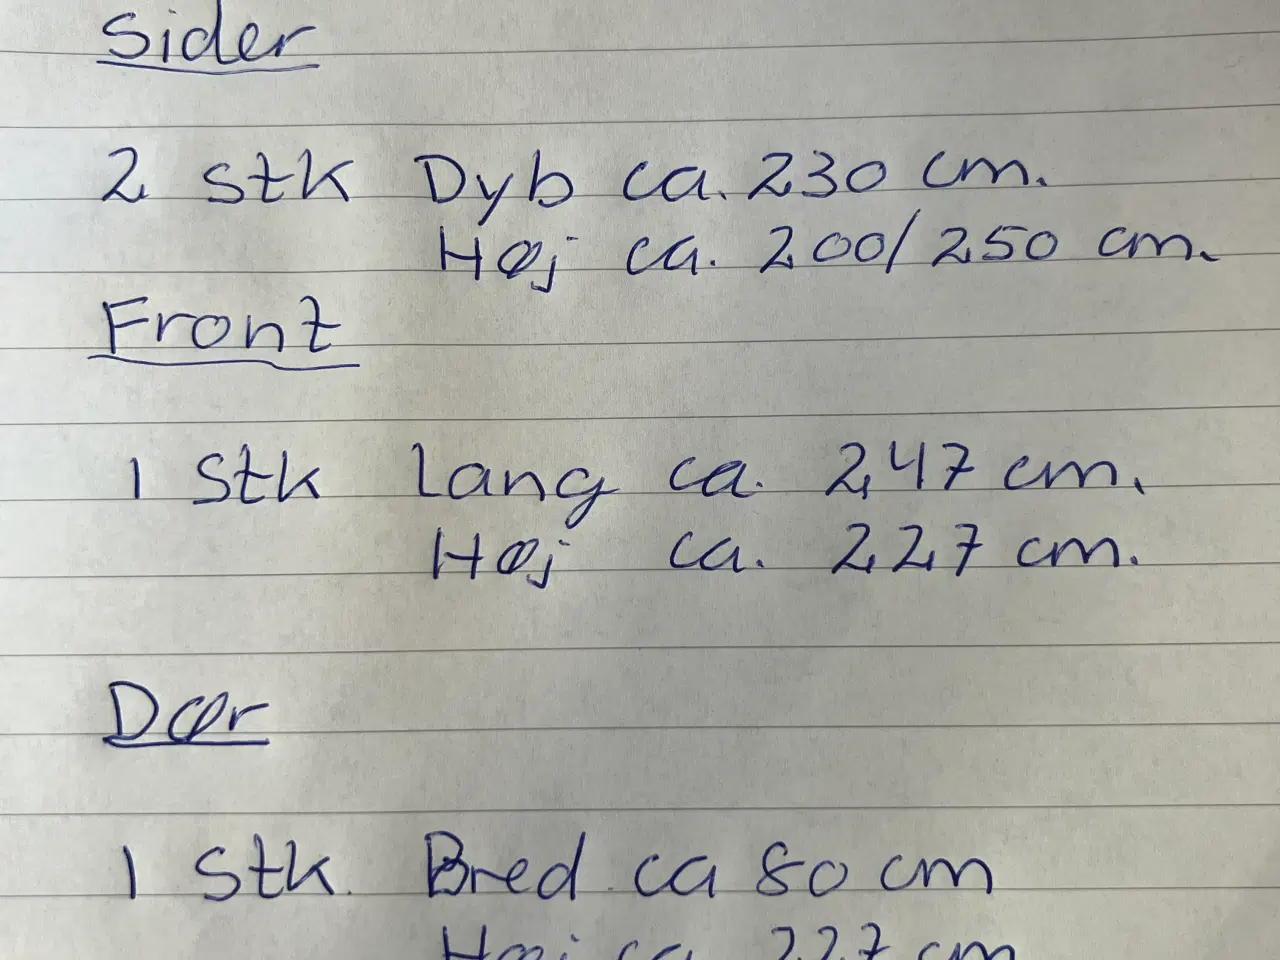 Sider
2 stk Dyb ca. 230 cm.
Høj ca. 200/250 cm.
Front
1 stk Lang ca. 247 cm.
Høj ca. 227 cm.
Dør
1 stk. Bred ca 80 cm
Høj ca. 227 cm